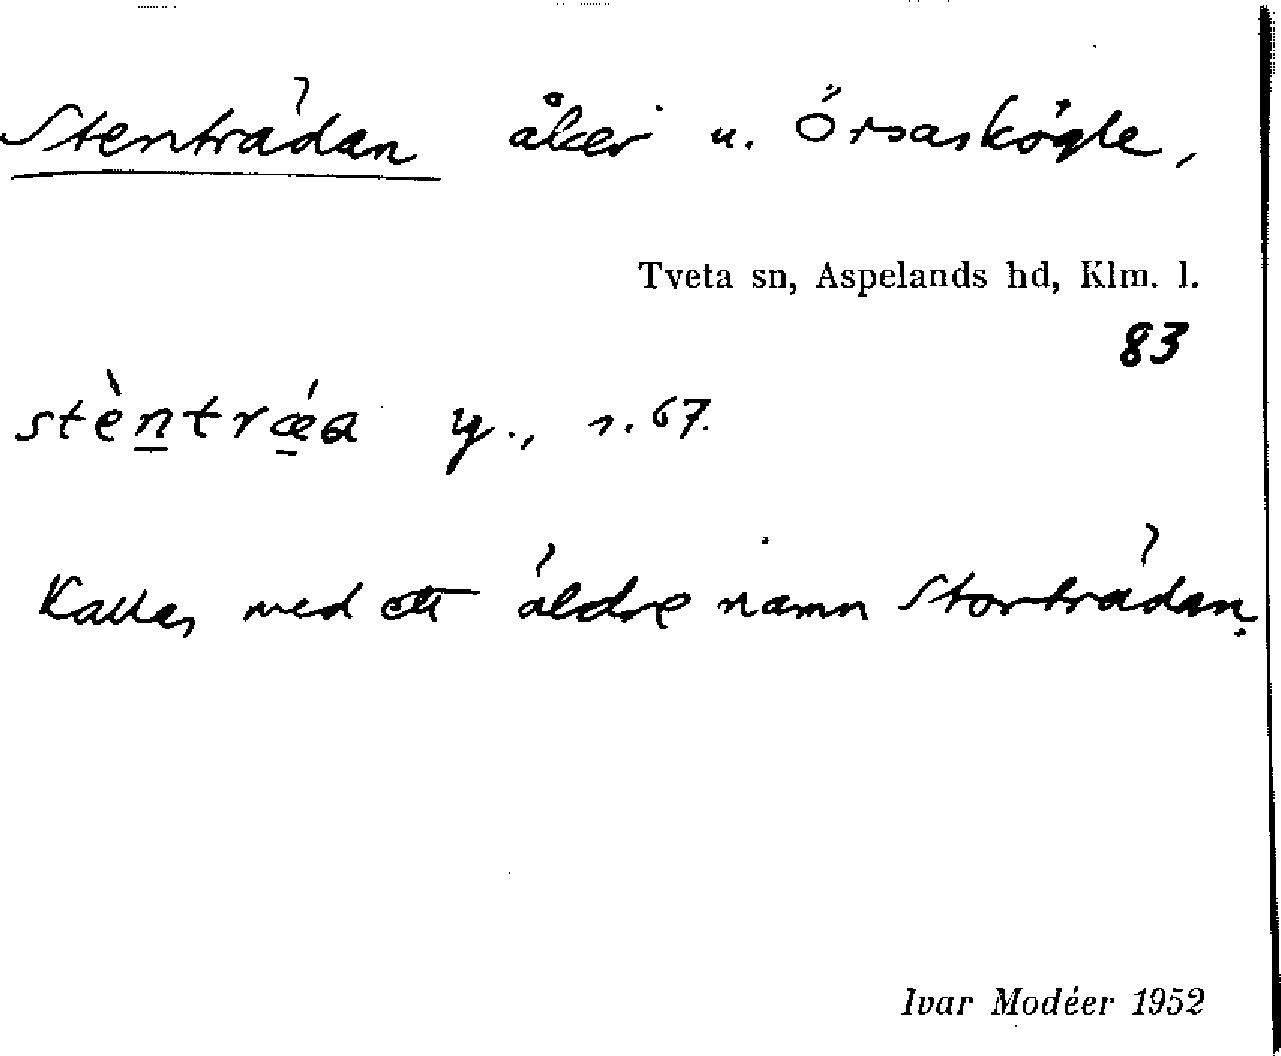 Stenträdan åker u. Örsaskögle,
Tveta sn, Aspelands hd, Klm. l.
83
stè̀ntrǽa y., r. 67.
Kallas med ett äldre namn Storträdan.
Ivar Modéer 1952